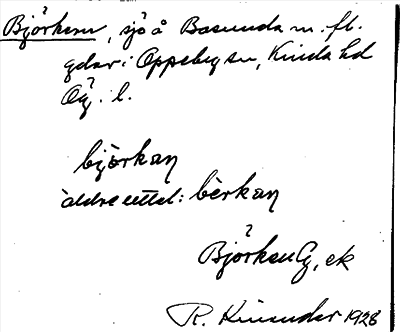 Björken, sjö å Basunda m. fl.
gdar i Oppeby sn, Kinda hd
Ög. l.
björkan
äldre uttal: bèrkan
Björken G, ek
R. 1928